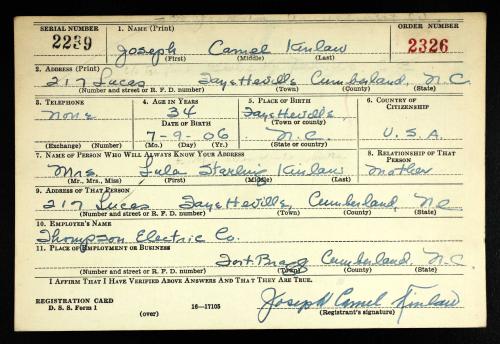 SERIAL NUMBER 1. NAME (Print) ORDER NUMBER
2239 Joseph Camel Kinlaw 2326
(First) (Middle) (Last)
2. ADDRESS (Print)
217 Lucas Fayetteville Cumberland, N.C.
(Number and street or R. F. D. number) (Town) (County) (State)
3. TELEPHONE 4. AGE IN YEARS 5. PLACE OF BIRTH 6. COUNTRY OF CITIZENSHIP
None 34 Fayetteville,
DATE OF BIRTH (Town or county)
7-9-06 N.C. U.S.A.
(Exchange) (Number) (Mo.) (Day) (Yr.) (State or country)
7. NAME OF PERSON WHO WILL ALWAYS KNOW YOUR ADDRESS 8. RELATIONSHIP OF THAT PERSON
Mrs. Lula Starling Kinlaw Mother
(Mr., Mrs., Miss) (First) (Middle) (Last)
9. ADDRESS OF THAT PERSON
217 Lucas Fayetteville, Cumberland, NC
(Number and street or R. F. D. number) (Town) (County) (State)
10. EMPLOYER'S NAME
Thompson Electric Co.
11. PLACE OF EMPLOYMENT OR BUSINESS
Fort Bragg Cumberland, N.C
(Number and street or R. F. D. number) (Town) (County) (State)
I AFFIRM THAT I HAVE VERIFIED ABOVE ANSWERS AND THAT THEY ARE TRUE.
REGISTRATION CARD
D. S. S. Form 1 (over) 16—17105 Joseph Camel Kinlaw
(Registrant's signature)